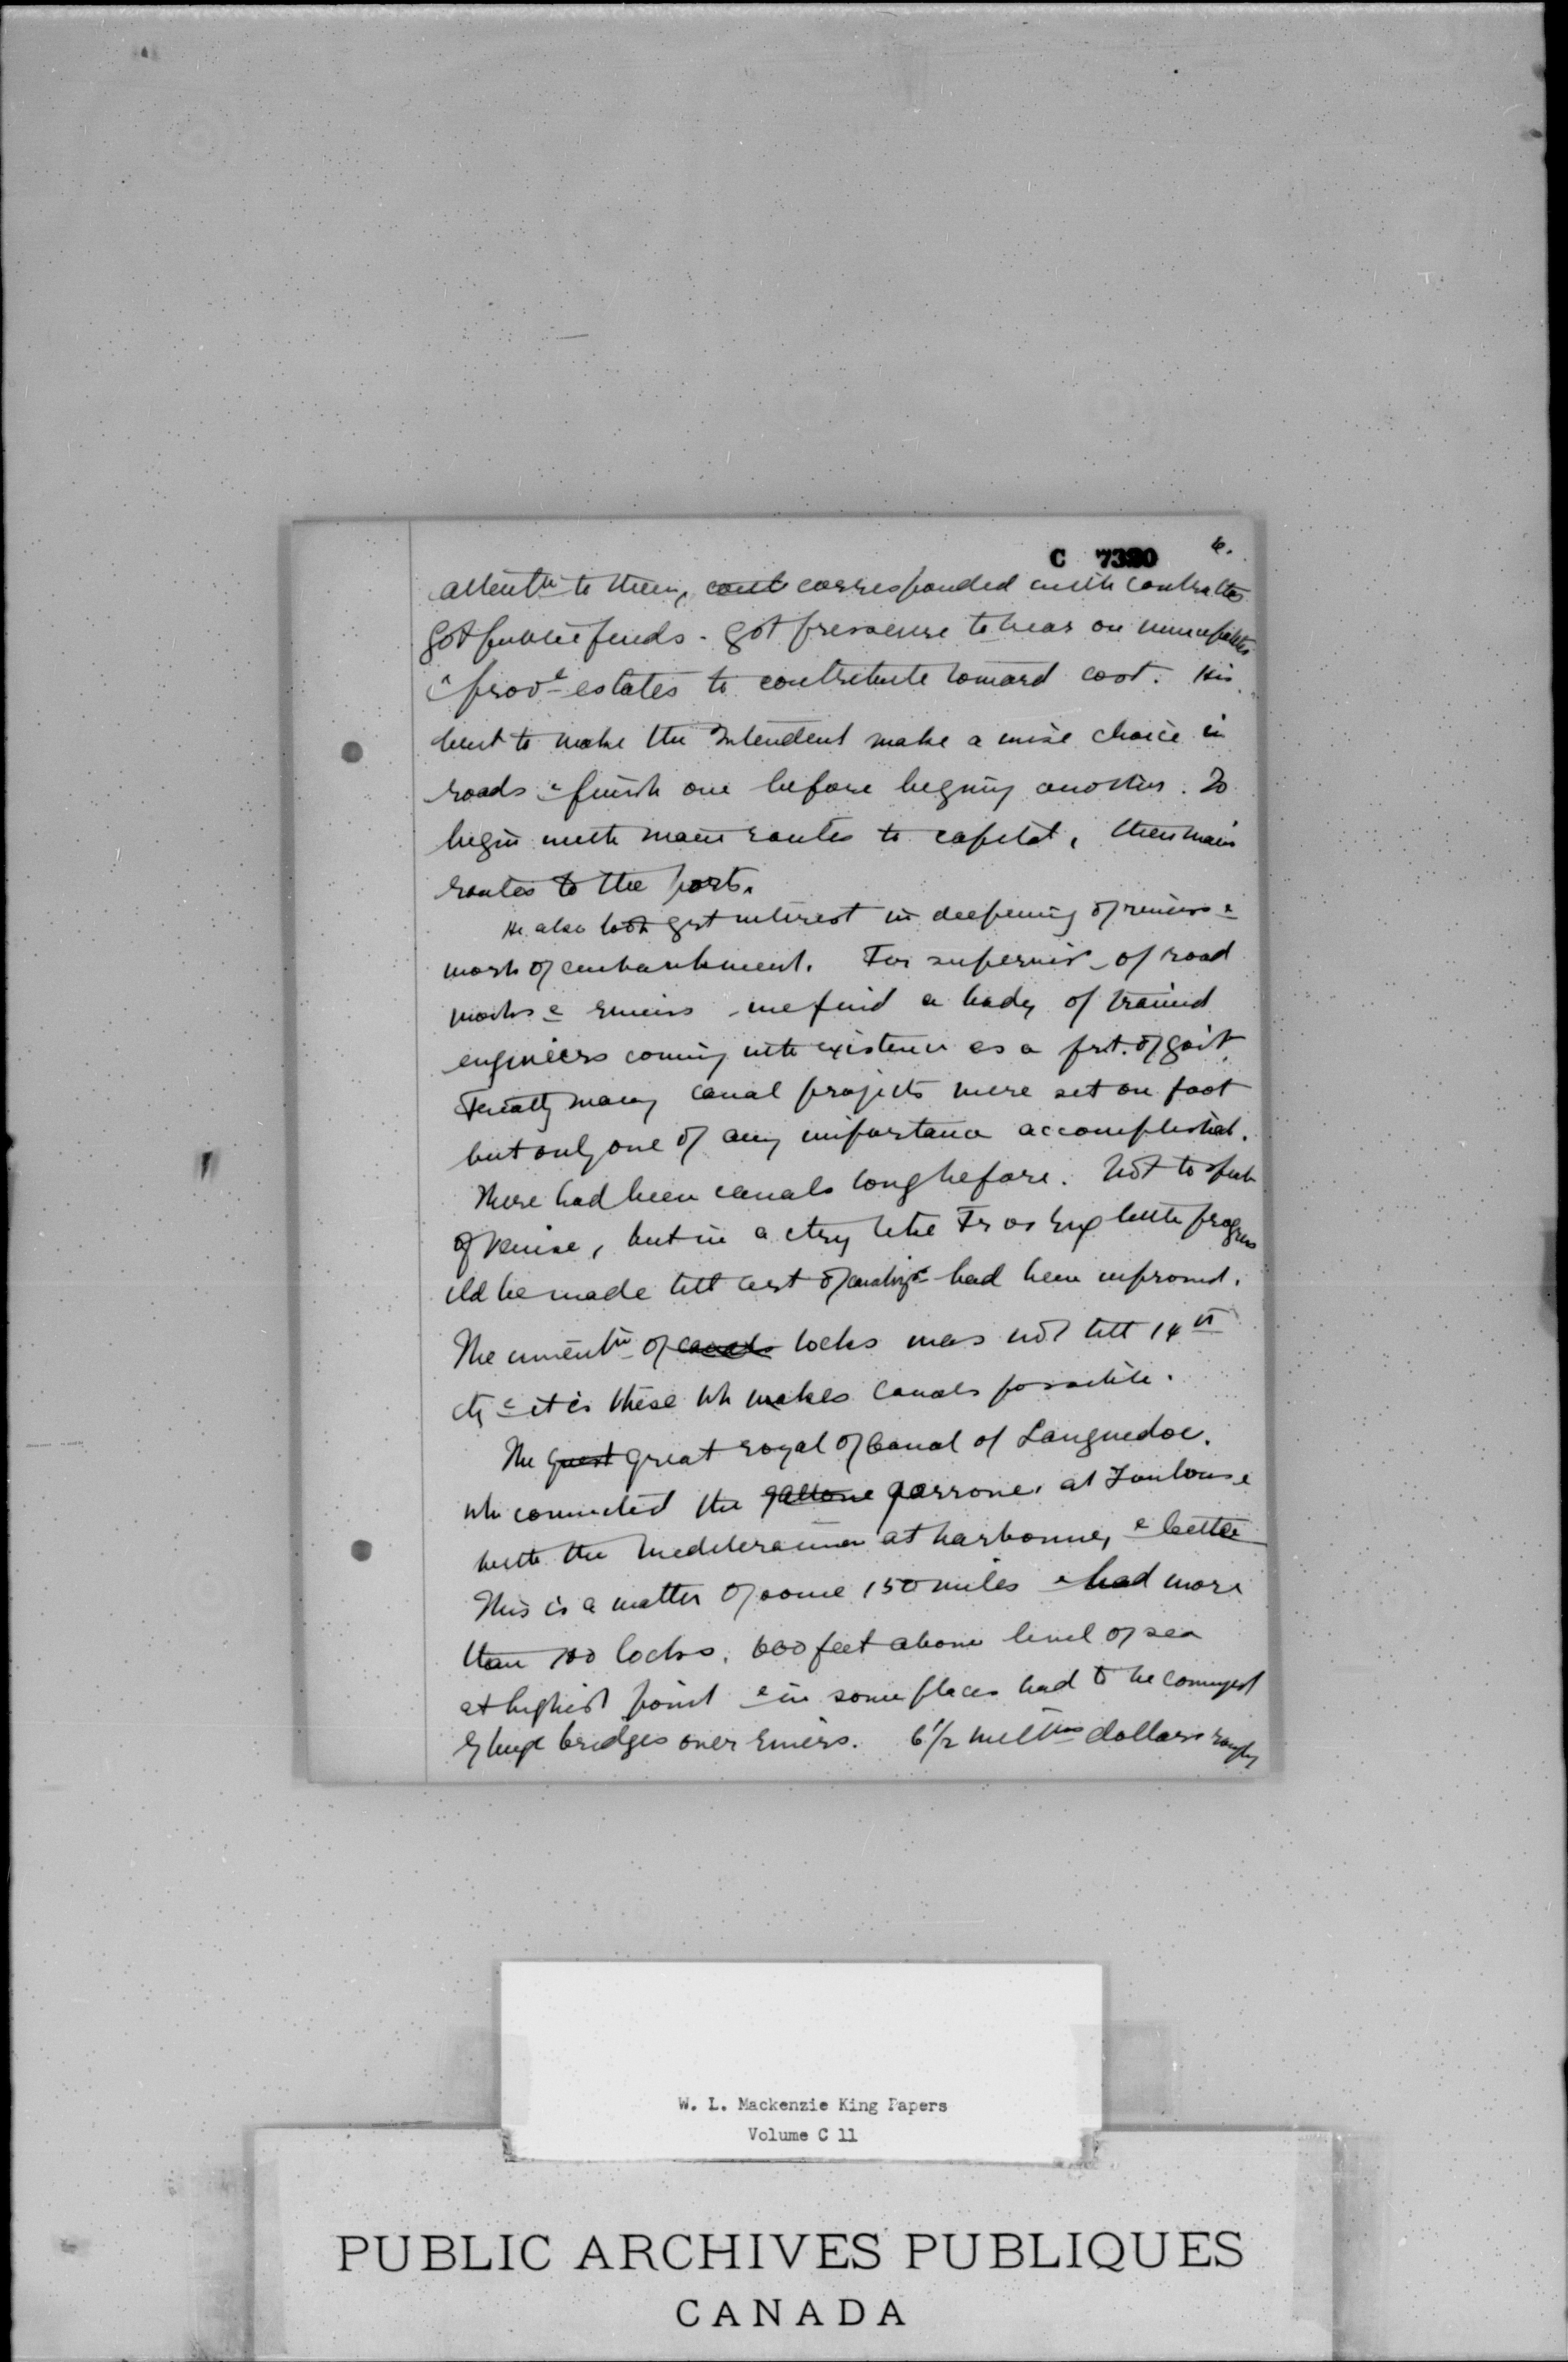 C 7320
6.
attentn to them, cont corresponded with contractors
got public funds. got pressure to bear on municipalities
& provl estates to contribute toward cost. His
bent to make the Intendent make a wise choice in
roads & finish one before beging another. To
begin with main routes to capital, then main
routes to the ports.
He also took grt interest in deepening of rivers &
work of embankment. For supervisn of road
works & rivers we find a body of trained
engineers coming into existence as a prt. of govt.
many canal projects were set on foot
but only one of any importance accomplished.
There had been canals long before. Not to speak
of Venice, but in a ctry like Fr or Eng little progress
cld be made till art of had been improved.
The inventn of canals locks was not till 14th
cty & it is these wh makes canals possible.
The great great royal of Canal of Languedoc.
wh connected the gallone garrone, at Toulouse
with the Mediteranean at Narbonne, & little
This is a matter of some 150 miles & had more
than 100 locks, 600 feet above level of sea
at highest point & in some places had to be conveyed
by huge bridges over rivers. 6 1/2 millns dollars roughly
W. L. Mackenzie King Papers
Volume C 11
PUBLIC ARCHIVES PUBLIQUES
CANADA